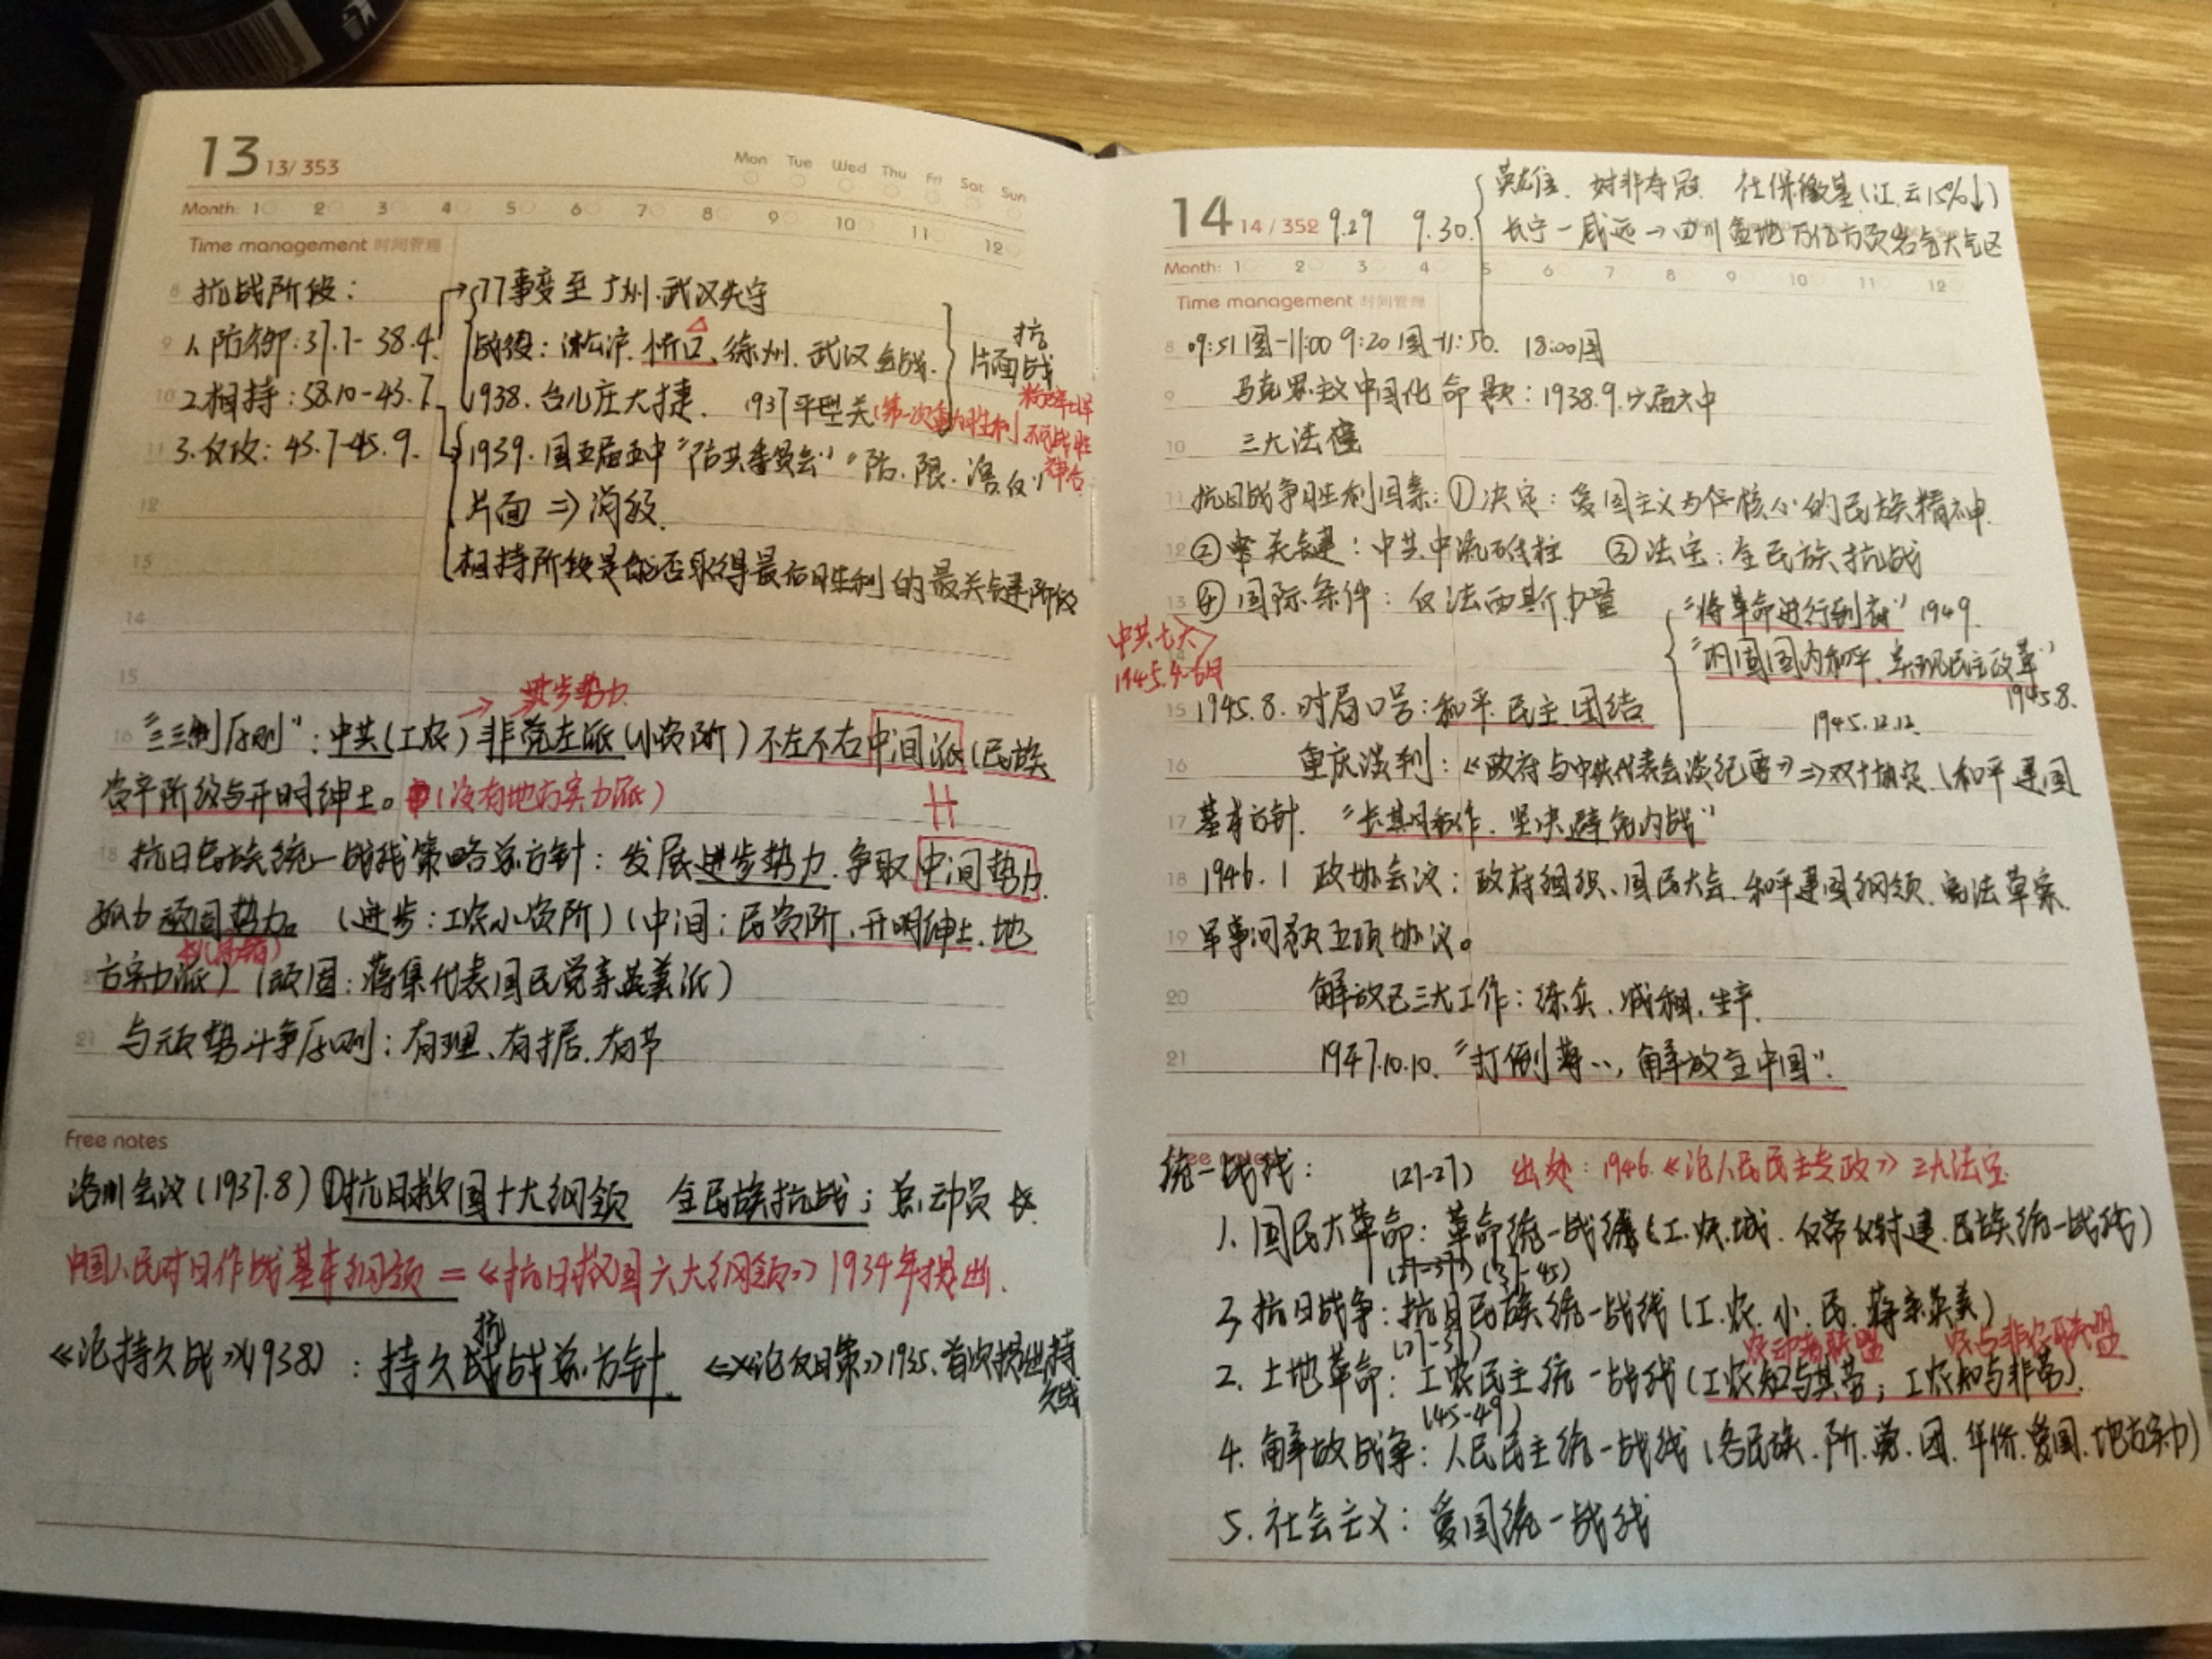 13 13/353
Mon Tue Wed Thu Fri Sat Sun
Month: 1 2 3 4 5 6 7 8 9 10 11 12
Time management 时间管理
8 抗战阶段：
77事变至广州.武汉失守
9 1.防御：37.7-38.9.
战役：淞沪.忻口、徐州.武汉会战.
抗
片面战
10 2.相持：38.10-43.7
1938.台儿庄大捷. 1937平型关(第一次重大胜利
11 3.反攻：43.7-45.9.
1939.国五届五中“防共委员会”“防.限.溶.反”
神合
12 片面⇒消极.
13 相持阶段是能否取得最后胜利的最关键阶段
14
15 → 进步势力
16 “三三制原则”：中共(工农) 非党左派(小资阶) 不左不右中间派(民族
资产阶级与开明绅士。(没有地方实力派)
18 抗日民族统一战线策略总方针：发展进步势力.争取中间势力.
孤力顽固势力。(进步：工农小资阶)(中间：民资阶.开明绅士.地
方实力派) (顽固：蒋集代表国民党亲英美派)
21 与顽势斗争原则：有理、有据.有节
Free notes
洛川会议(1937.8)①抗日救国十大纲领 全民族抗战；总动员
中国人民对日作战基本纲领=《抗日救国六大纲领》1934年提出.
抗
《论持久战》(1938)：持久战战总方针. 《论反日策》1935.首次提出持
久战
14 14/352 9.29 9.30.
英龙佳、对非夺冠 社保缴基(江.云15%↓)
长宁-威远→四川盆地万亿方页岩气大气区
Month: 1 2 3 4 5 6 7 8 9 10 11 12
Time management 时间管理
8 09:51图-11:00 9:20图-11:50. 18:00图
9 马克思主义中国化命题：1938.9.六届六中
10 三大法宝
11 抗日战争胜利因素：①决定：爱国主义为核心的民族精神.
12 ②关键：中共中流砥柱 ③法宝：全民族抗战
13 ④国际条件：反法西斯力量
“将革命进行到底”1949.
中共七大
1945.4-6月
“巩固国内和平.实现民主改革”
1945.8.
15 1945.8.时局口号：和平.民主.团结
1945.12.12.
16 重庆谈判：《政府与中共代表会谈纪要》⇒双十协定(和平建国
17 基本方针. “长期合作.坚决避免内战”
18 1946.1 政协会议：政府组织、国民大会.和平建国纲领.宪法草案.
19 军事问题五项协议。
20 解放区三大工作：练兵.减租.生产.
21 1947.10.10.“打倒蒋..，解放全中国”.
统一战线： (21-27) 出处：1946.《论人民民主专政》三大法宝
1.国民大革命：革命统一战线(工.农.城.反帝反封建.民族统一战线)
(27-37)(37-45)
3.抗日战争：抗日民族统一战线(工.农.小.民.蒋亲英美)
(27-37) 劳动者联盟 劳与非劳联盟
2.土地革命：工农民主统一战线(工农知与其劳；工农知与非劳).
(45-49)
4.解放战争：人民民主统一战线(各民族.阶.党.团.华侨.爱国.地方实力)
5.社会主义：爱国统一战线